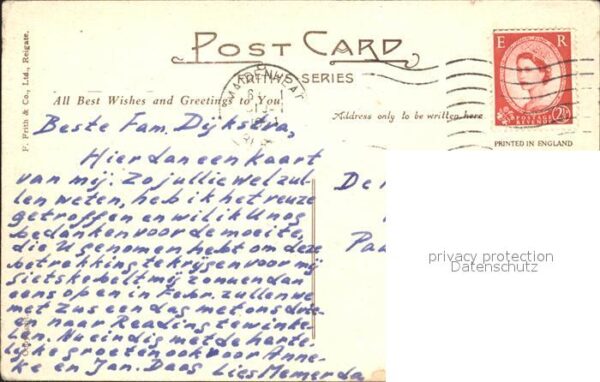 POST CARD
FRITH'S SERIES
All Best Wishes and Greetings to You
Address only to be written here
E R
POSTAGE
REVENUE
2½
PRINTED IN ENGLAND
F. Frith & Co., Ltd., Reigate.
MAIDENHEAD
Beste Fam. Dijkstra,
Hier dan een kaart
van mij. Zo jullie wel zul-
len weten, heb ik het reuze
getroffen en wil ik U nog
bedanken voor de moeite,
die U genomen hebt om deze
betrekking te krijgen voor mij
Sietske belt mij zo nu en dan
eens op en in Febr. zullen we
met Zus een dag met ons drie-
en naar Reading te winke-
len. Nu eindig met de harte-
lijke groeten ook voor Anne-
ke en Jan. Daag Lies Memerda
De
Pa
privacy protection
Datenschutz